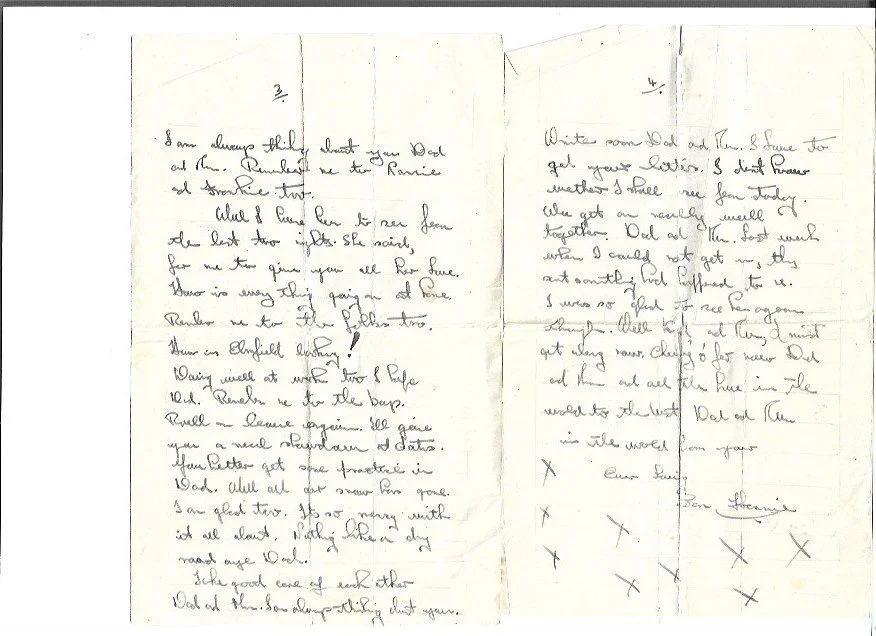 3.
I am always thinkg about you Dad
ad Mum. Remember me to
ad Frankie too.
Well I have been to see Jean
the last two nights. She said,
for me to give you all her love.
How is every thing going on at home.
Rember me to the folks too.
How is looking!
Doing well at work too I hope
Dad. Remeber me to the boys.
Roll on leave again. I'll give
you a real showdown at darts.
You better get some practise in
Dad. Well all our snow has gone.
I am glad too. Its so messy with
it all about. Nothg like a dry
road aye Dad.
Take good care of each other
Dad ad Mum. I am always thinkg about you.
4.
Write soon Dad ad Mum. I love to
get your letters. I dont know
wether I shall see Jean today.
We get on really well
together. Dad ad Mum. Last week
when I could not get in, they
somethig had happened to me.
I was so glad to see her again
though. Well Dad ad Mum, I must
get along now. Cheerio for now Dad
ad Mum ad all the love in the
world to the best Dad ad Mum
in the world from your
Ever Loving
Son
X X X X X X X X X